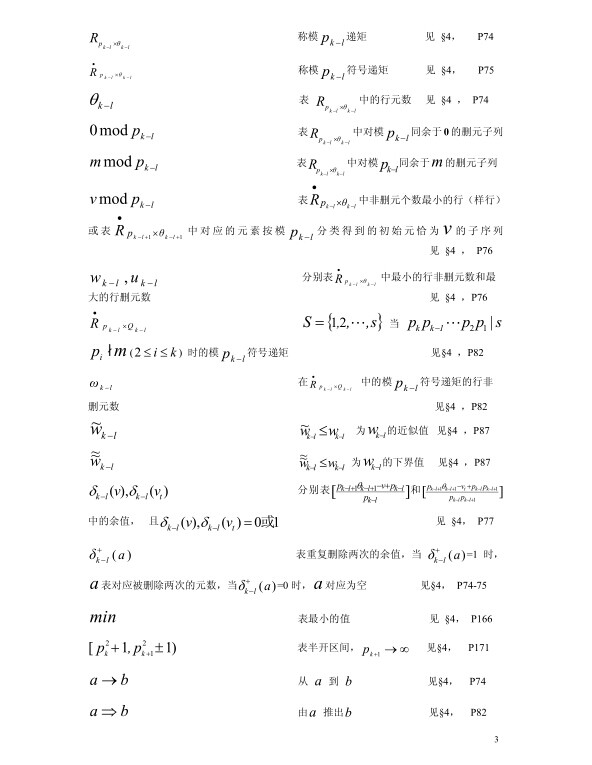 R_{p_{k-l}×θ_{k-l}} 称模 p_{k-l} 递矩 见 §4， P74
Ṙ_{p_{k-l}×θ_{k-l}} 称模 p_{k-l} 符号递矩 见 §4， P75
θ_{k-l} 表 R_{p_{k-l}×θ_{k-l}} 中的行元数 见 §4 ， P74
0 mod p_{k-l} 表 R_{p_{k-l}×θ_{k-l}} 中对模 p_{k-l} 同余于 0 的删元子列
m mod p_{k-l} 表 R_{p_{k-l}×θ_{k-l}} 中对模 p_{k-l} 同余于 m 的删元子列
v mod p_{k-l} 表 Ṙ_{p_{k-l}×θ_{k-l}} 中非删元个数最小的行（样行）
或表 Ṙ_{p_{k-l+1}×θ_{k-l+1}} 中对应的元素按模 p_{k-l} 分类得到的初始元恰为 v 的子序列
见 §4 ， P76
w_{k-l} , u_{k-l} 分别表 Ṙ_{p_{k-l}×θ_{k-l}} 中最小的行非删元数和最
大的行删元数 见 §4 ，P76
Ṙ_{p_{k-l}×Q_{k-l}} S = {1,2, ⋯, s} 当 p_k p_{k-l} ⋯ p_2 p_1 | s
p_i ∤ m (2 ≤ i ≤ k) 时的模 p_{k-l} 符号递矩 见§4 ，P82
ω_{k-l} 在 Ṙ_{p_{k-l}×Q_{k-l}} 中的模 p_{k-l} 符号递矩的行非
删元数 见§4 ，P82
w̃_{k-l} w̃_{k-l} ≤ w_{k-l} 为 w_{k-l} 的近似值 见§4 ，P87
w̃̃_{k-l} w̃̃_{k-l} ≤ w_{k-l} 为 w_{k-l} 的下界值 见§4 ，P87
δ_{k-l}(v), δ_{k-l}(v_t) 分别表 [(p_{k-l+1}θ_{k-l+1} - v + p_{k-l})/p_{k-l}] 和 [(p_{k-l+1}θ_{k-l+1} - v_t + p_{k-l}p_{k-l+1})/(p_{k-l}p_{k-l+1})]
中的余值， 且 δ_{k-l}(v), δ_{k-l}(v_t) = 0或1 见 §4， P77
δ⁺_{k-l}(a) 表重复删除两次的余值，当 δ⁺_{k-l}(a)=1 时，
a 表对应被删除两次的元数，当 δ⁺_{k-l}(a)=0 时，a 对应为空 见§4， P74-75
min 表最小的值 见 §4， P166
[ p²_k + 1, p²_{k+1} ± 1) 表半开区间， p_{k+1} → ∞ 见§4， P171
a → b 从 a 到 b 见§4， P74
a ⇒ b 由 a 推出 b 见§4， P82
3